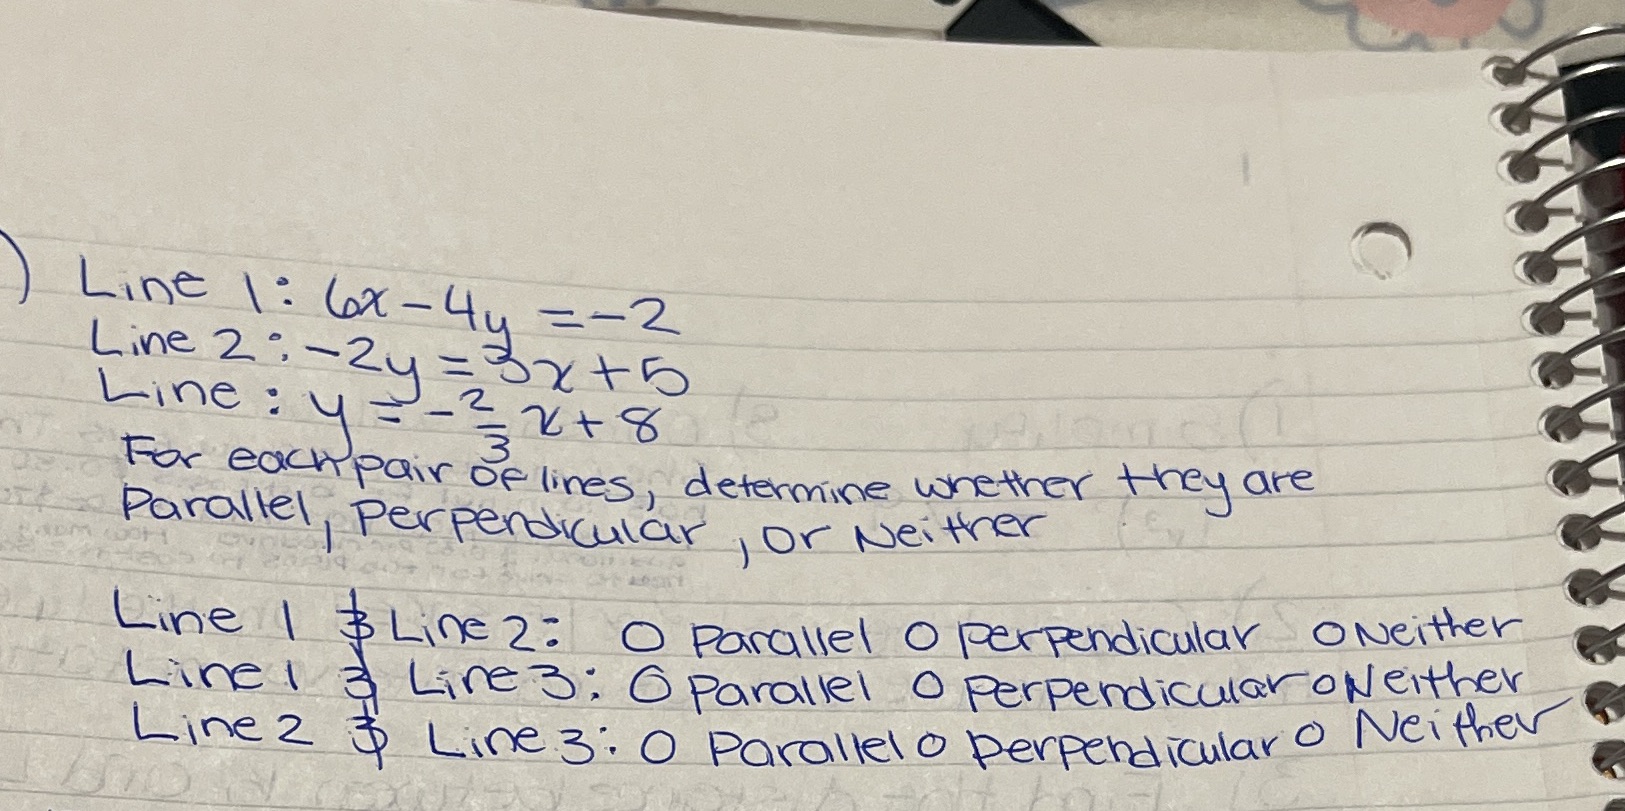 ) Line 1: 6x - 4y = -2
Line 2: -2y = 3x + 5
Line: y = -2/3 x + 8
For each pair of lines, determine whether they are
Parallel, Perpendicular, or Neither
Line 1 & Line 2: O Parallel O Perpendicular O Neither
Line 1 & Line 3: O Parallel O Perpendicular O Neither
Line 2 & Line 3: O Parallel O Perpendicular O Neither